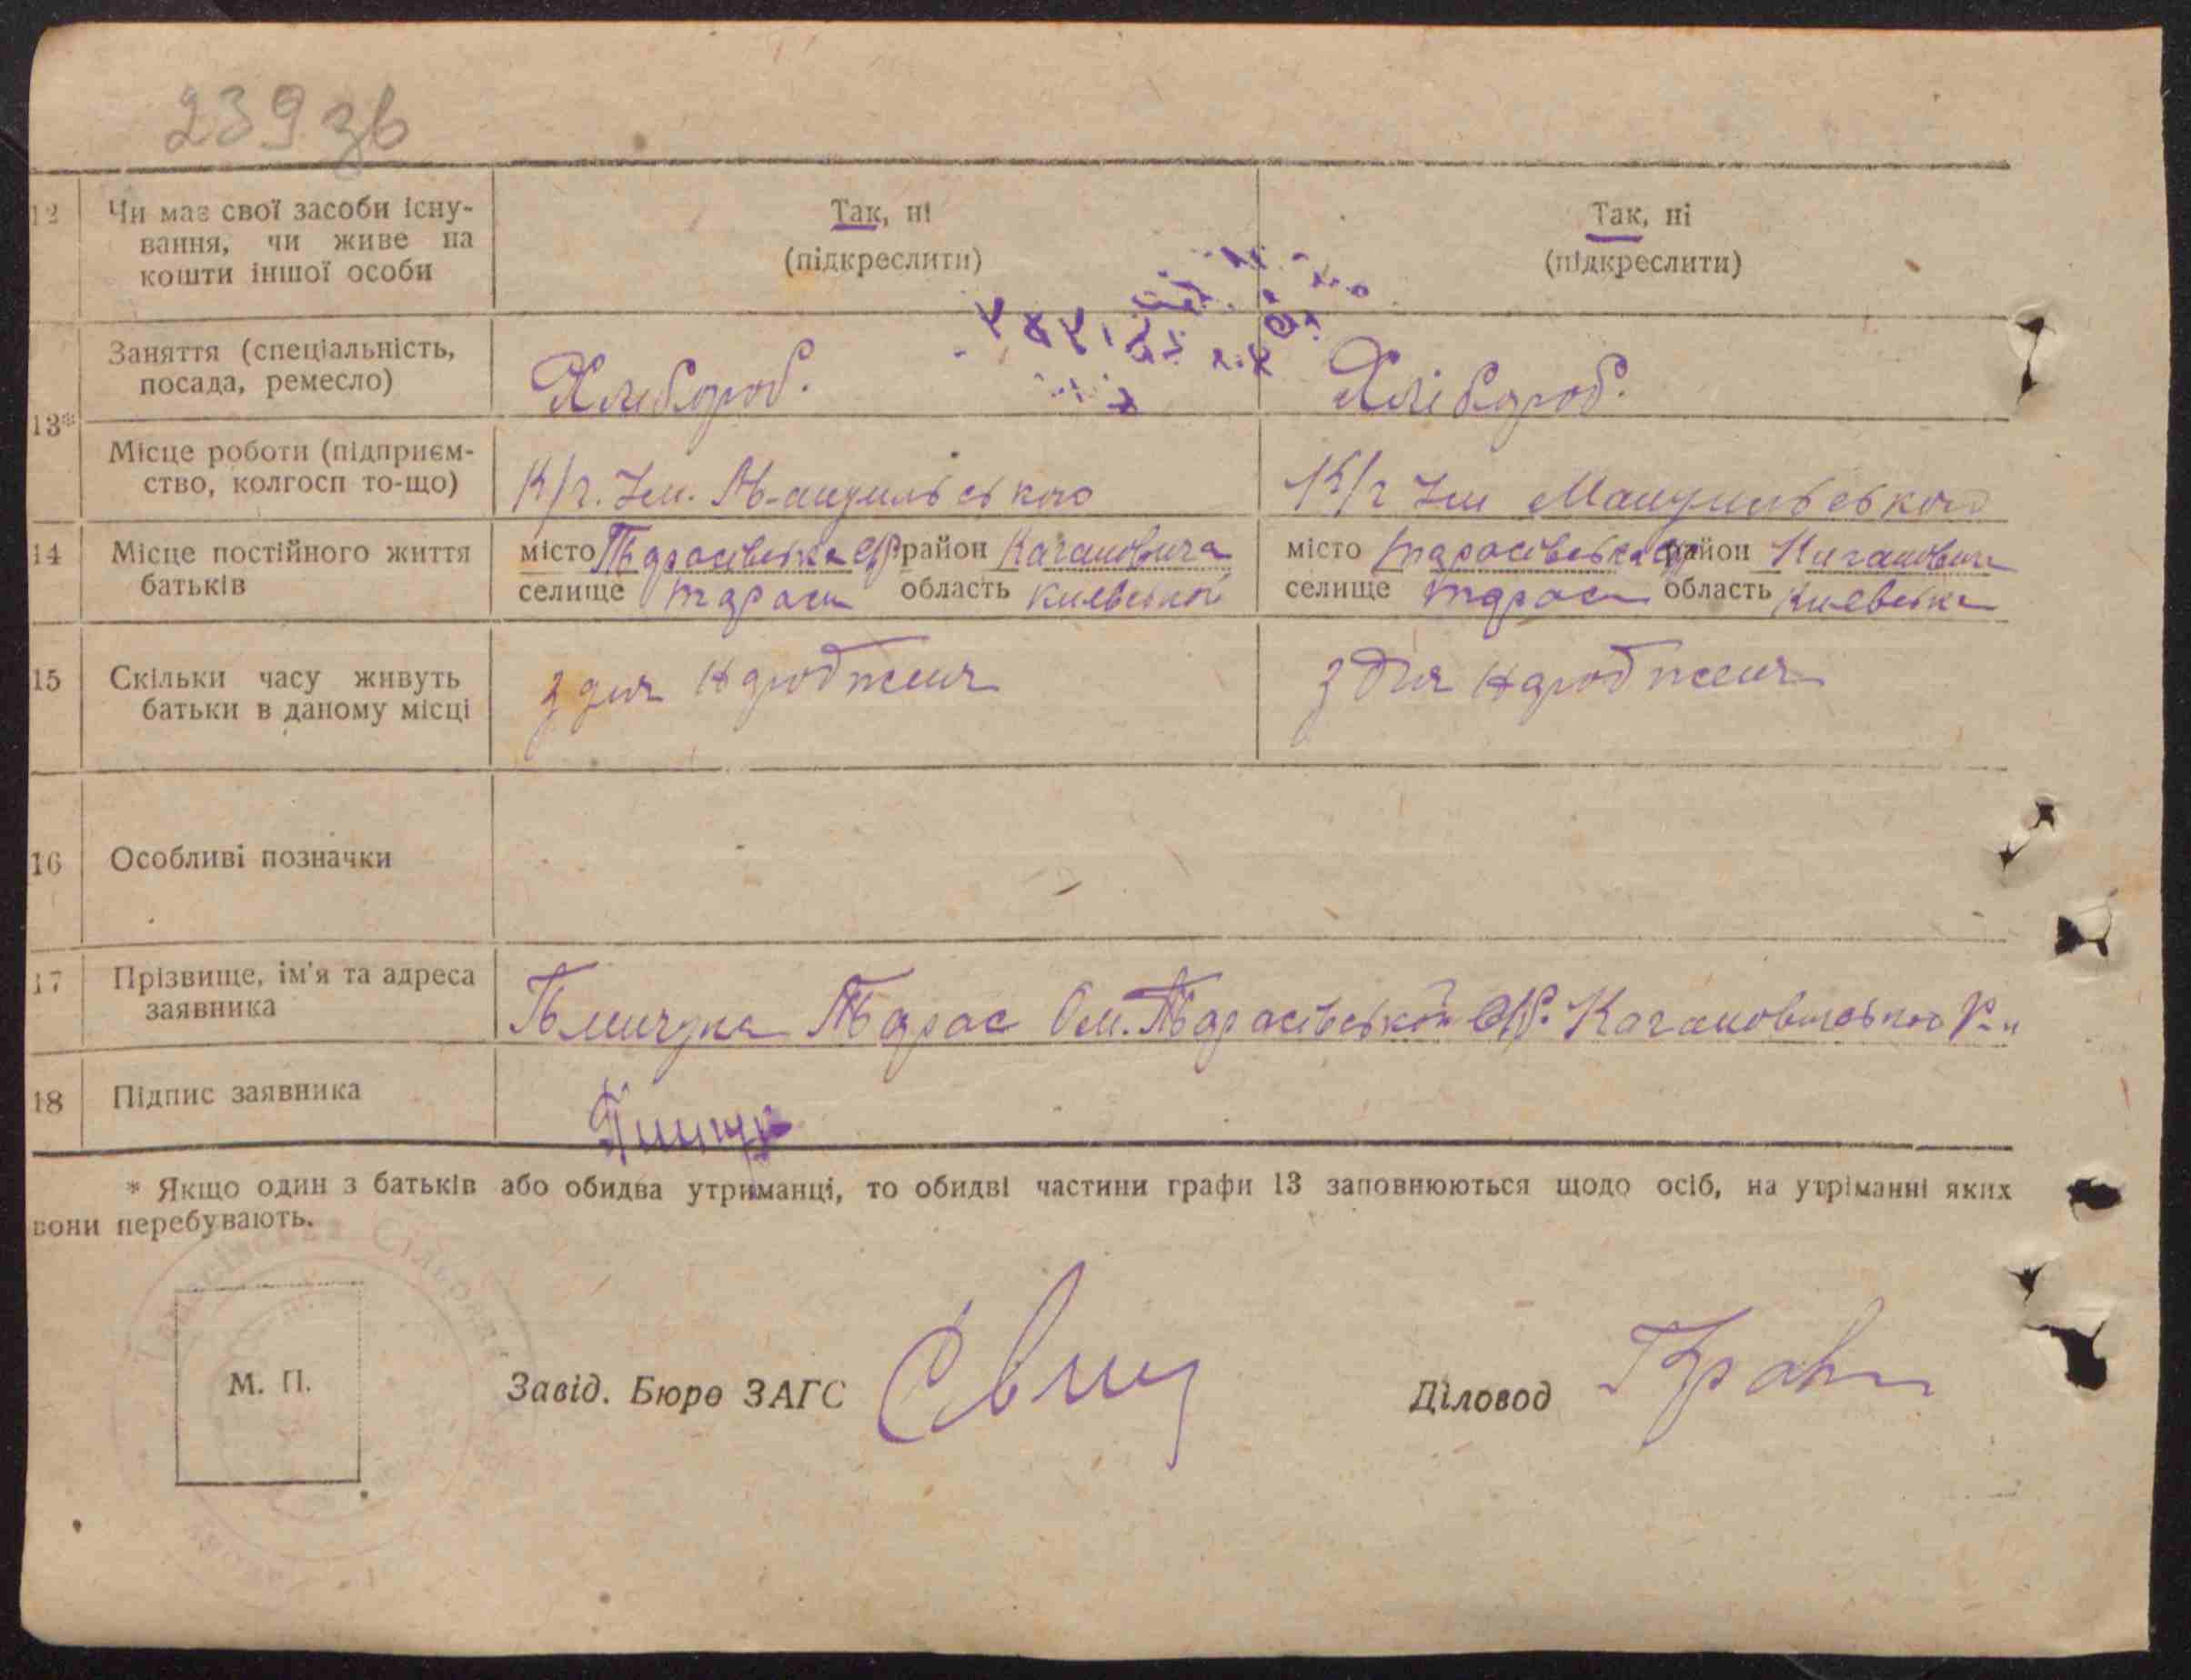 239 зв
12 Чи має свої засоби існу-
вання, чи живе на
кошти іншої особи
Так, ні
(підкреслити)
Так, ні
(підкреслити)
13* Заняття (спеціальність,
посада, ремесло)
Хлібороб.
Хлібороб.
Місце роботи (підприєм-
ство, колгосп то-що)
К/г. Ім. Мануильського
К/г Ім Мануильського
14 Місце постійного життя
батьків
місто Тарасівська с/р район Кагановича
селище Тараси область Київської
місто Тарасівська с/р район Кагановича
селище Тараси область Київська
15 Скільки часу живуть
батьки в даному місці
з дня народженя
з дня народженя
16 Особливі позначки
17 Прізвище, ім'я та адреса
заявника
Тарас Ом. Тарасівської с/р. Кагановичського р-н
18 Підпис заявника
* Якщо один з батьків або обидва утриманці, то обидві частини графи 13 заповнюються щодо осіб, на утріманні яких
вони перебувають.
Сільрада
М. П.
Завід. Бюро ЗАГС
Діловод